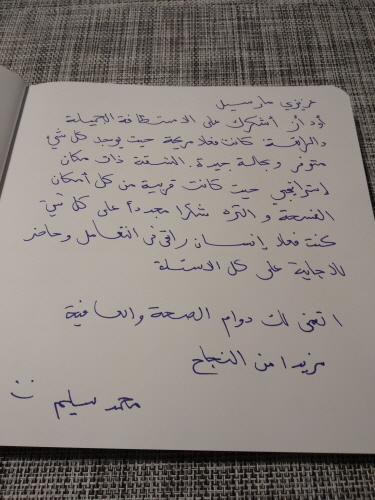 عزيزي مارسيل
أود أن أشكرك على الاستظافة الجميلة
والراقية. كانت فعلا مريحة حيث يوجد كل شيء
متوفر وبحالة جيدة. الشقة ذات مكان
استراتيجي حيث كانت قريبة من كل أمكان
الفسحة و التنزه شكرا مجدداً على كل شيء
كنت فعلا إنسان راقي في التعامل وحاضر
للاجابة على كل الاسئلة
اتمنى لك دوام الصحة والعافية
مزيدا من النجاح
محمد سليم